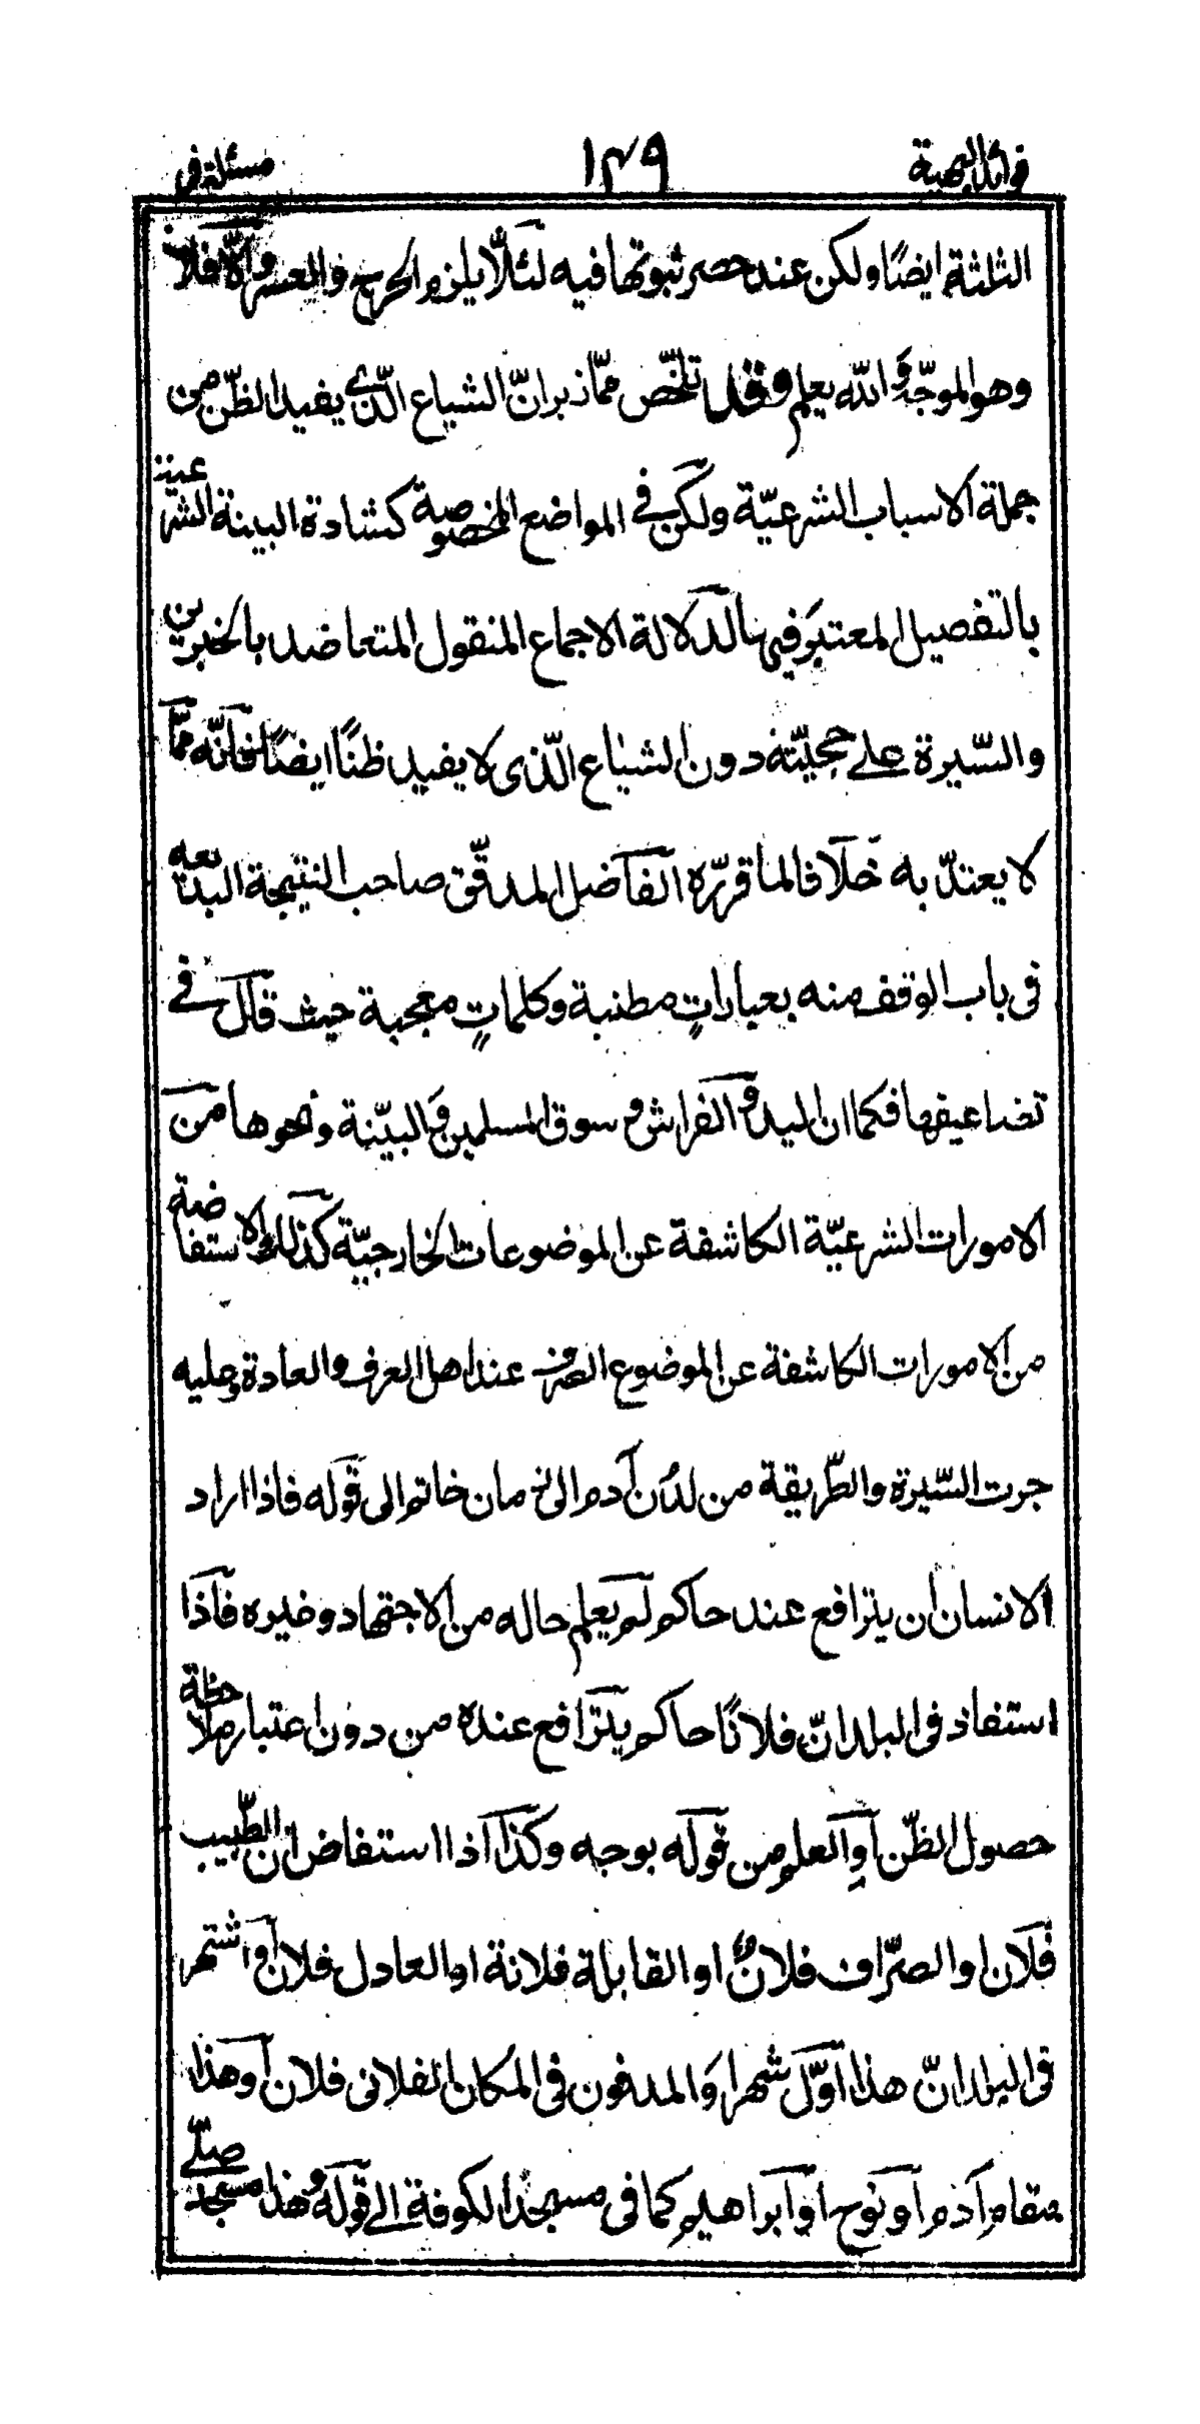 فوائد البهية ١٣٩ مسئلة في
الثلثة ايضًا ولكن عند حصر ثبوتها فيه لئلّا يلزم الحرج والعسر والّا فلا
وهو الموجّه والله يعلم وقد تلخّص ممّا زبر انّ الشياع الّذي يفيد الظّن من
جملة الاسباب الشرعيّة ولكن في المواضع المخصوصة كشادة البينة الشرعية
بالتفصيل المعتبر فيها لدلالة الاجماع المنقول المتعاضد بالخبرين
والسّيرة على حجيّته دون الشياع الّذي لا يفيد ظنًا ايضًا فانّه ممّا
لا يعتدّ به خلافا لما قرّره الفاضل المدقّق صاحب النتيجة البديعه
في باب الوقف منه بعباراتٍ مطنبة وكلماتٍ معجبة حيث قال في
تضاعيفها فكما ان اليد والفراش و سوق المسلمين والبيّنة ونحوها من
الامورات الشرعيّة الكاشفة عن الموضوعات الخارجيّة كذلك الاستفاضة
من الامورات الكاشفة عن الموضوع الصرف عند اهل العرف والعادة وعليه
جرت السّيرة والطّريقة من لدُن آدم الى زمان خاتم الى قوله فاذا اراد
الانسان ان يترافع عند حاكم لم يعلم حاله من الاجتهاد وغيره فاذا
استفاذ في البلد انّ فلانًا حاكم يترافع عنده من دون اعتبار ملاحظة
حصول الظّن او العلم من قوله بوجه وكذا اذا استفاض ان الطّبيب
فلان او الصرّاف فلانٌ او القابلة فلانة او العادل فلان او اشتهر
في البلد انّ هذا اوّل شهر او المدفون في المكان الفلاني فلان او هذا
مقام آدم او نوح او ابراهيم كما في مسجد الكوفة الى قوله وهذا مسجد صلّى